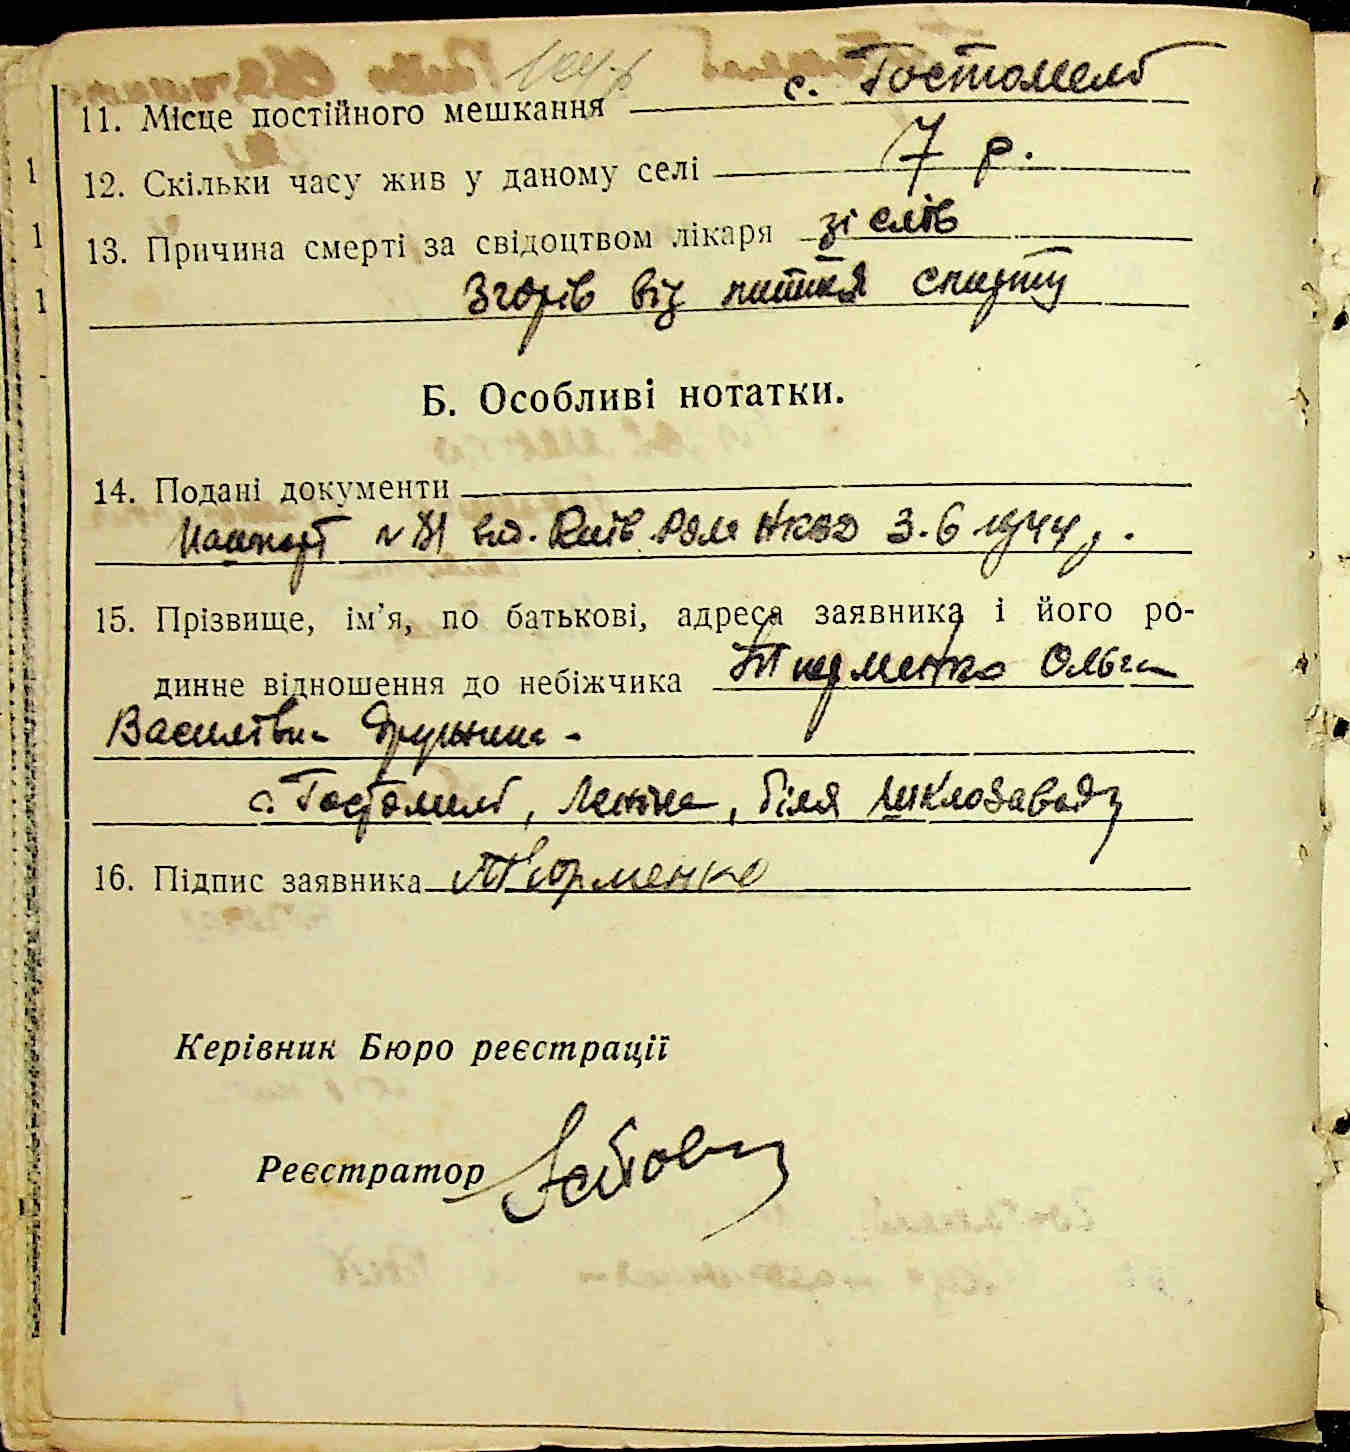 11. Місце постійного мешкання с. Гостомель
12. Скільки часу жив у даному селі 7 р.
13. Причина смерті за свідоцтвом лікаря зі слів
Згорів від пиття спирту
Б. Особливі нотатки.
14. Подані документи
Пашпорт № 81 вид. Київ НКВД 3.6 1944 р.
15. Прізвище, ім'я, по батькові, адреса заявника і його ро-
динне відношення до небіжчика Ольга
Василівна Дружина
с. Гостомель, Леніна, біля шклозаводу
16. Підпис заявника
Керівник Бюро реєстрації
Реєстратор
1
1
1